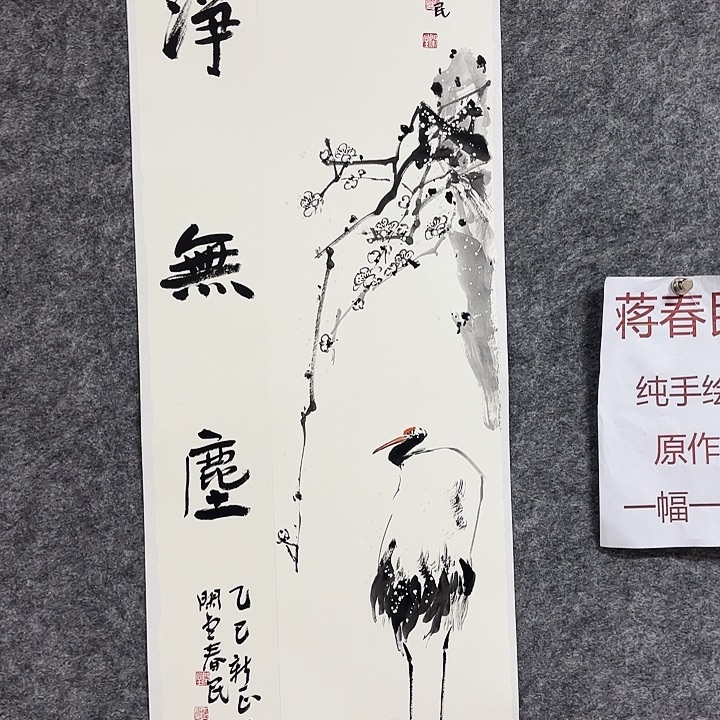 淨
無
塵
乙巳新正
閑堂春民
民
蒋春
纯手绘
原作
一幅一